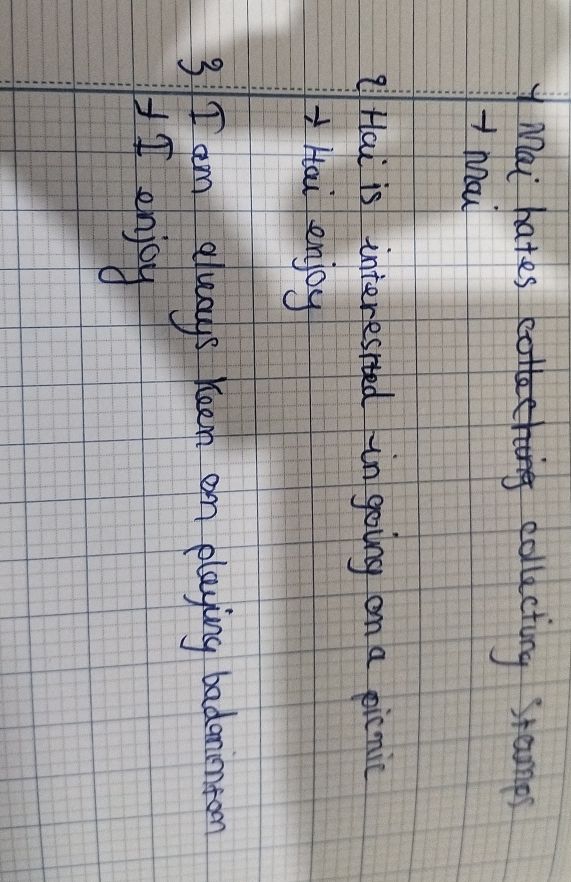 1 Mai hates collecting collecting stamps
→ Mai
2 Hai is interested in going on a picnic
→ Hai enjoy
3 I am always keen on playing badminton
→ I enjoy